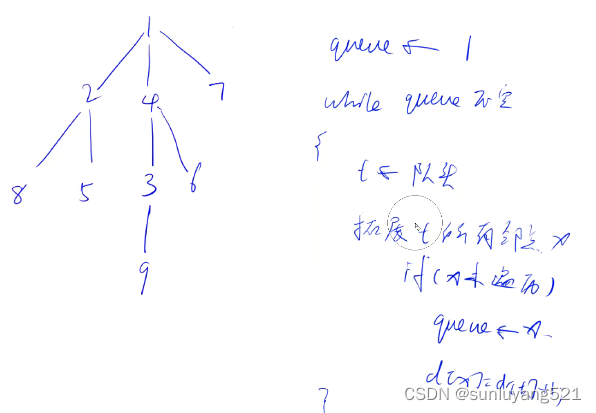 1
2 4 7
8 5 3 6
9
queue ← 1
while queue 不空
{
t ← 队头
拓展 t 的所有邻点 x
if(x未遍历)
queue ← x
d[x]=d[t]+1
}
CSDN @sunluyang521